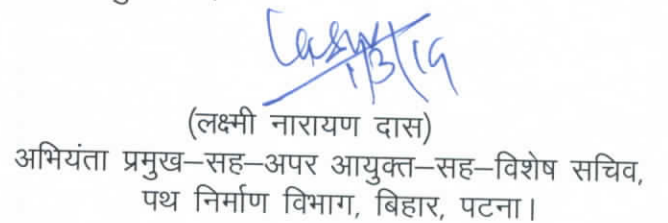 1/3/19
(लक्ष्मी नारायण दास)
अभियंता प्रमुख–सह–अपर आयुक्त–सह–विशेष सचिव,
पथ निर्माण विभाग, बिहार, पटना।